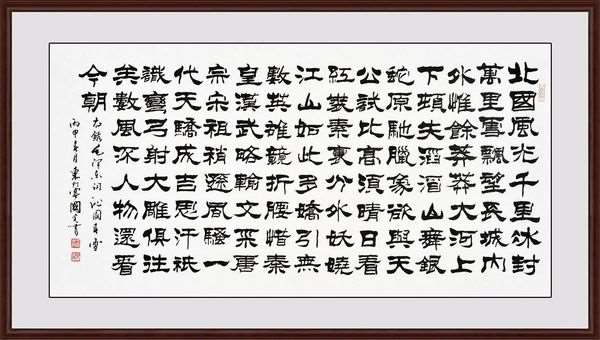 北國風光千里冰封
萬里雪飄望長城內
外惟餘莽莽大河上
下頓失滔滔山舞銀
蛇原馳臘象欲與天
公試比高須晴日看
紅裝素裹分外妖嬈
江山如此多嬌引無
數英雄競折腰惜秦
皇漢武略輸文采唐
宗宋祖稍遜風騷一
代天驕成吉思汗祗
識彎弓射大雕俱往
矣數風流人物還看
今朝
右錄毛澤東詞沁園春雪
丙申春月